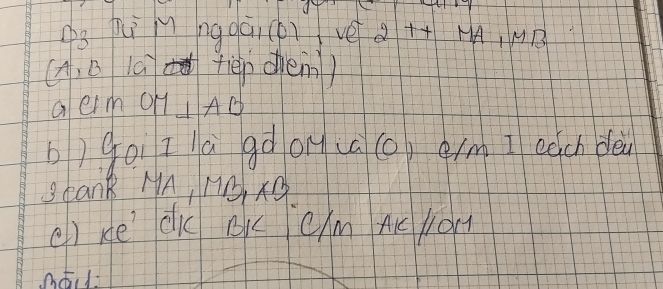 Từ M ngoài (O), vẽ 2 tt MA, MB
(A, B là tiếp điểm)
a c/m OM ⊥ AB
b) Gọi I là gđ OM và (O) c/m I cách đều
3 cạnh MA, MB, AB
c) kẻ đk BK c/m AK // OM